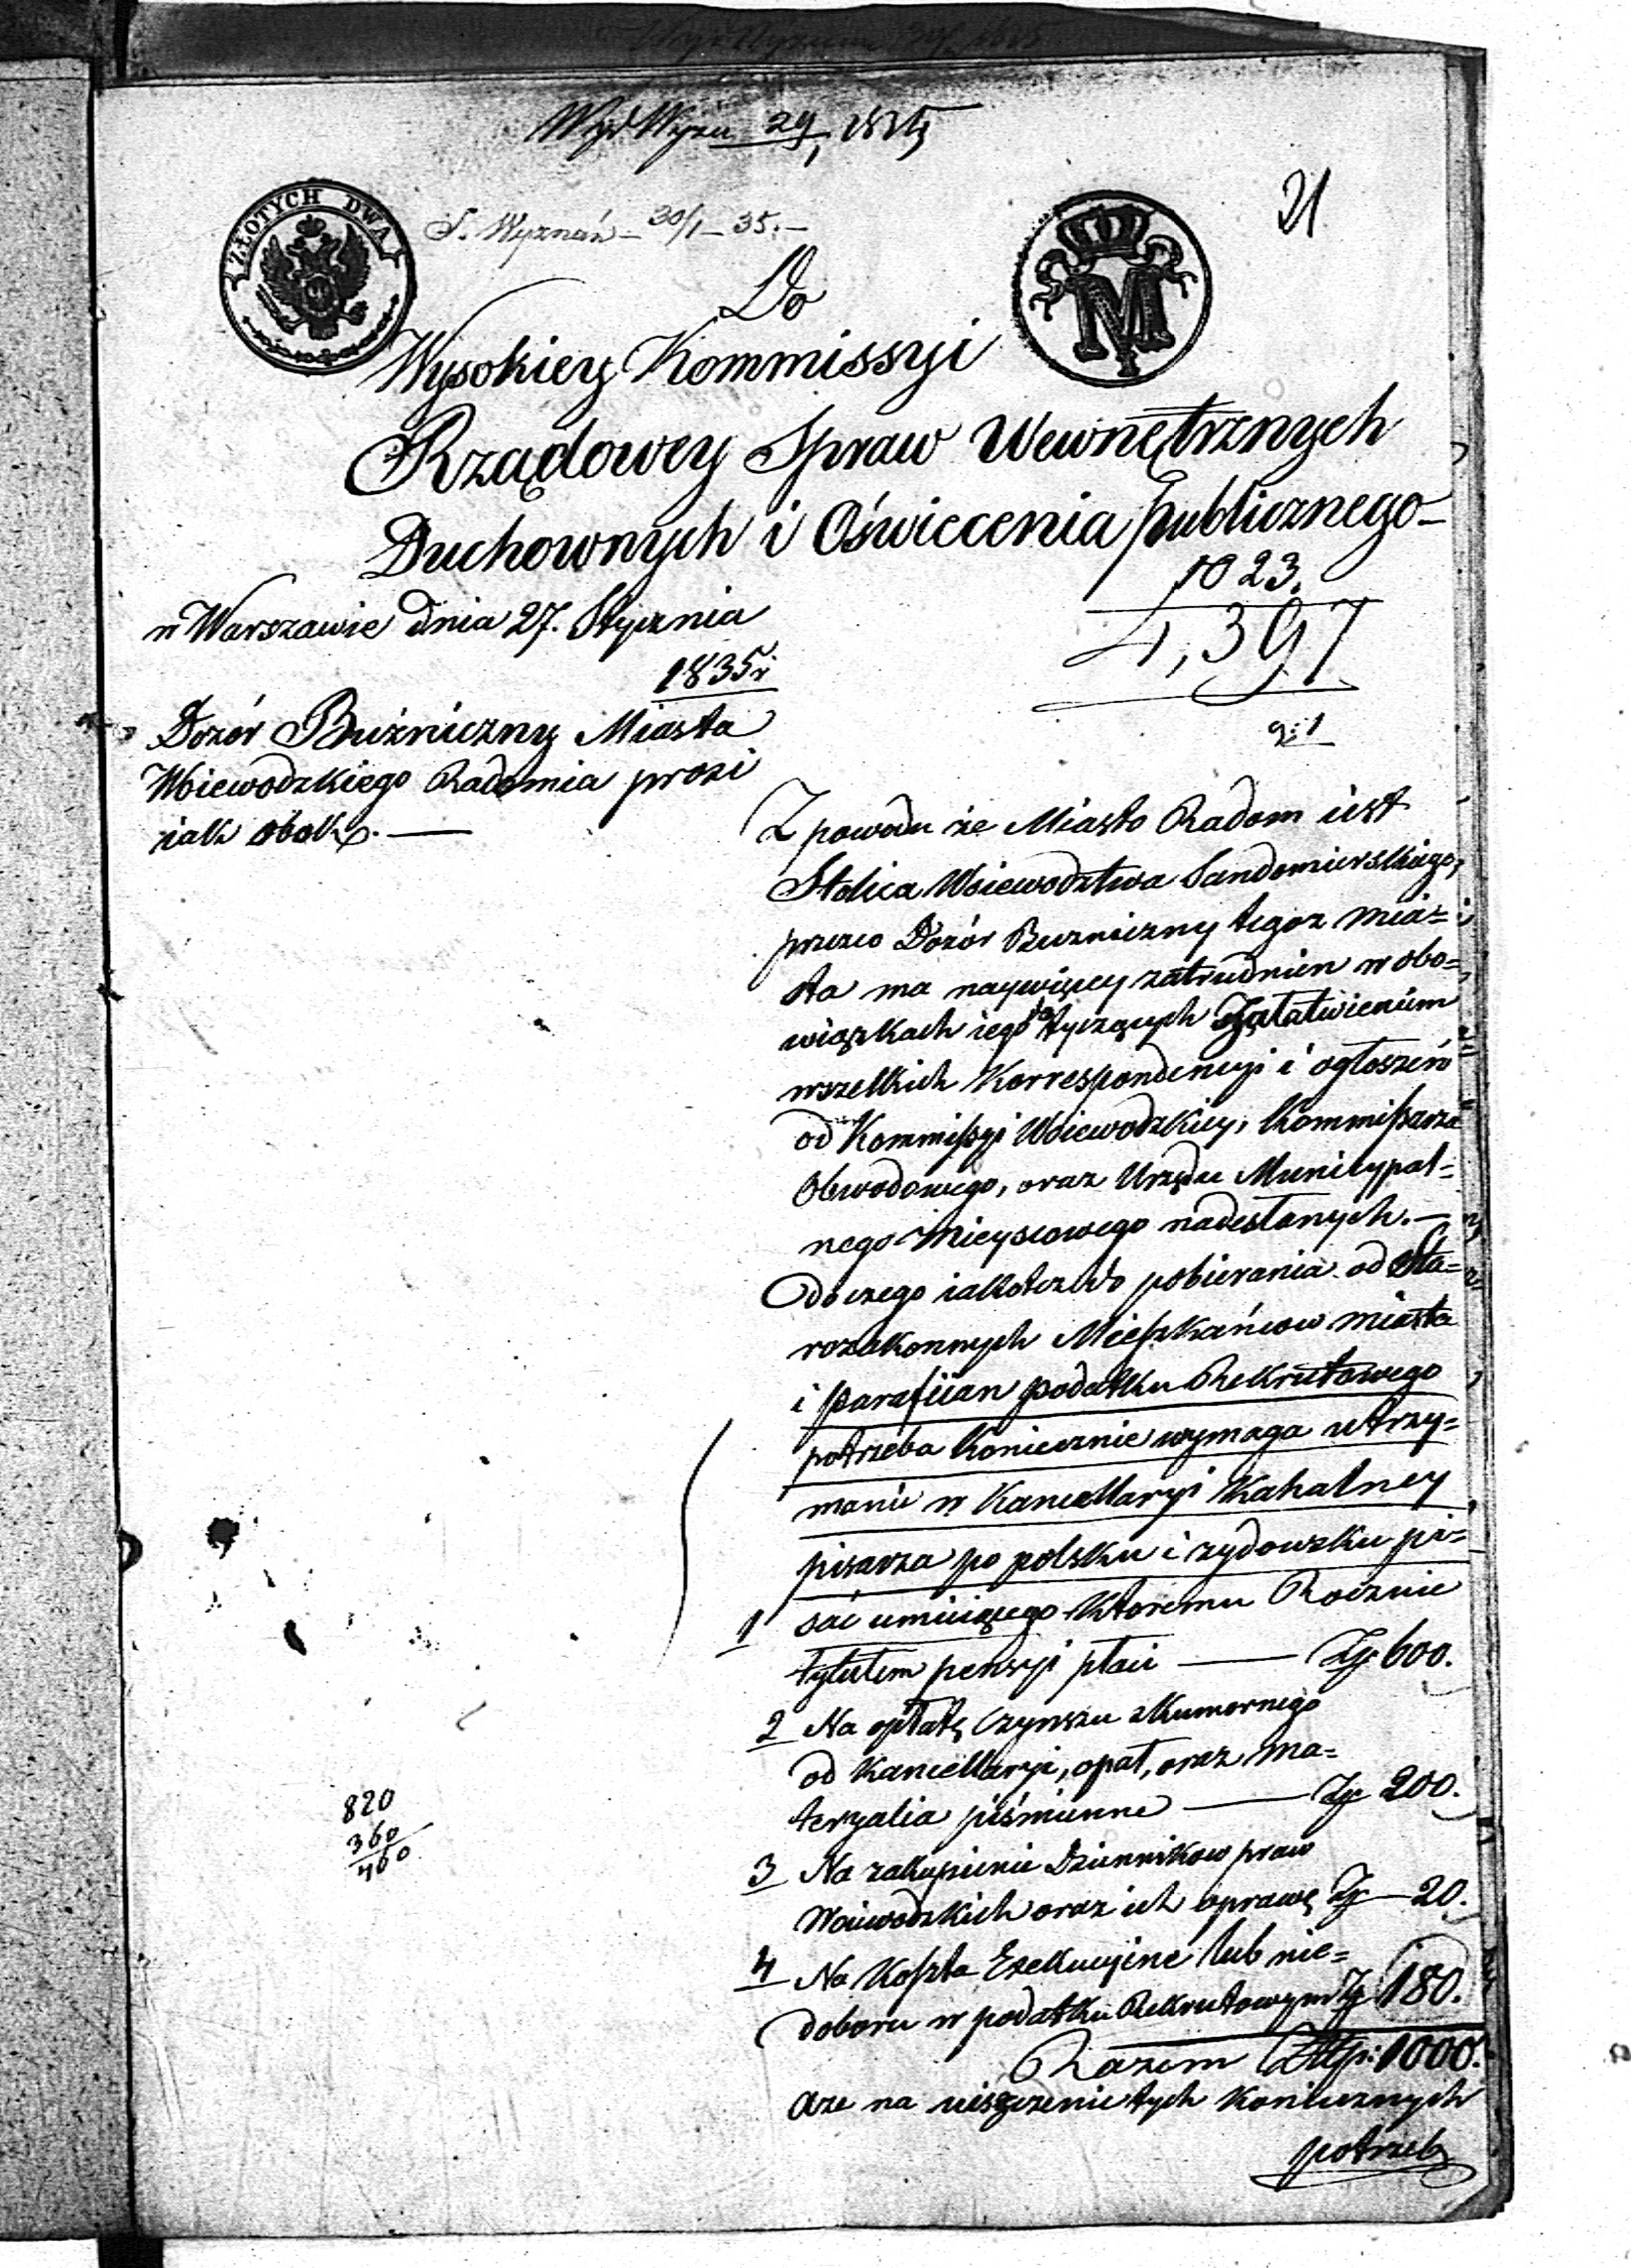 Wyd Wyzn 29/1 1835
21
ZŁOTYCH DWA
S. Wyznań – 30/1 – 35. –
M
Do
Wysokiey Kommissyi
Rządowey Spraw Wewnętrznych
Duchownych i Oświecenia publicznego –
1023.
4,397
w Warszawie dnia 27. Stycznia
1835 r
Dozór Bużniczny Miasta
Woiewodzkiego Radomia prosi
iak obok. —
Z powodu że Miasto Radom iest
Stolica Woiewodztwa Sandomierskiego,
przeto Dozór Buzniczny tegoz mia=
sta ma naywięcy zatrudnien w obo=
wiązkach iego tyczących Załatwienim
wszelkich Korrespondencyi i ogłoszeń
od Kommissyi Woiewodzkiey, Kommissarza
Obwodowego, oraz Urzędu Municypal=
nego Mieyscowego nadesłanych. —
do czego iakotez do pobierania od Sta=
rozakonnych Mieszkańcow miasta
i parafiian podatku Rekrutowego
potrzeba koniecznie wymaga utrzy=
manie w Kancellaryi Kahalney
pisarza po polsku i zydowsku pi=
1 sać umieiącego Ktoremu Rocznie
tytułem pensyi płaci — Zp 600.
2 Na opłatę Czynszu zkumornego
od Kancellaryi, opał, oraz ma=
teryalia piśmienne — Zp 200.
820
360
460
3 Na zakupienie Dziennikow praw
Woiewodzkich oraz ich oprawę Zp — 20.
4 Na Koszta Exekucyine lub nie=
doboru w podatku Rekrutowym Zp 180.
Razem Złtp: 1000.
aze na uiszczenie tych koniecznych
potrzeb